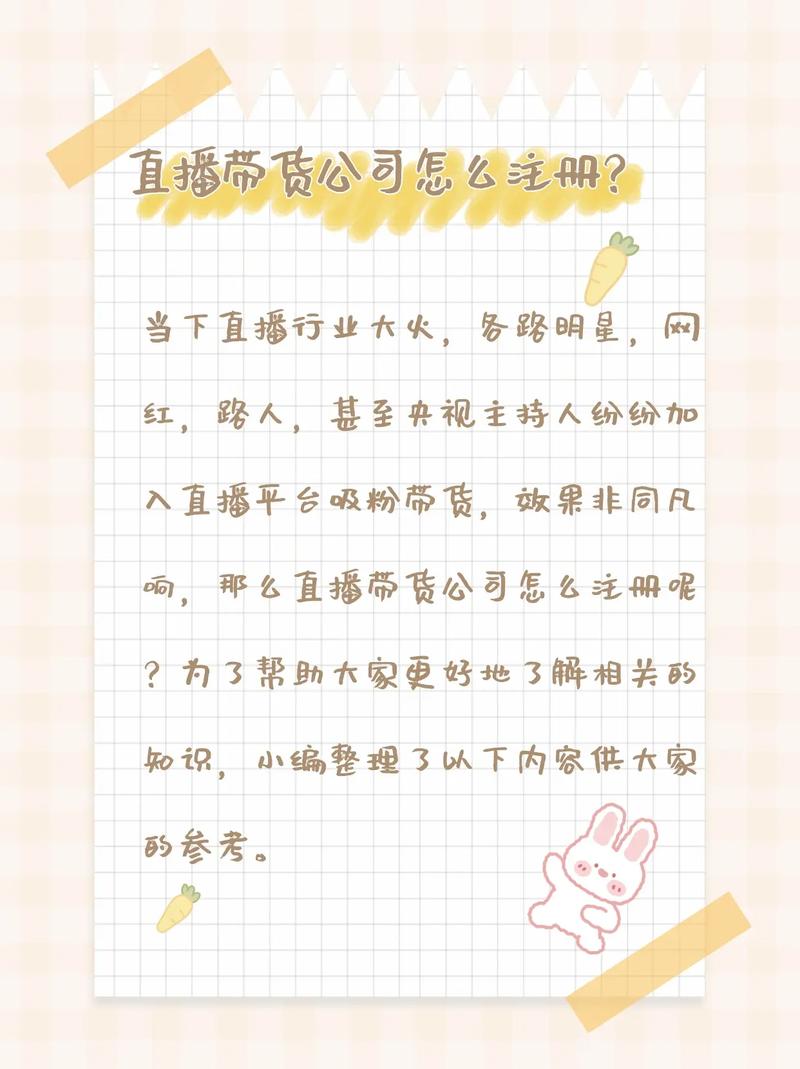 直播带货公司怎么注册?
当下直播行业大火，各路明星，网
红，路人，甚至央视主持人纷纷加
入直播平台吸粉带货，效果非同凡
响，那么直播带货公司怎么注册呢
？为了帮助大家更好地了解相关的
知识，小编整理了以下内容供大家
的参考。